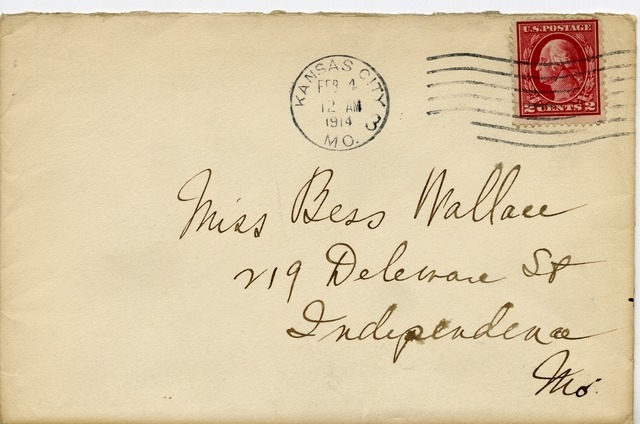 U.S. POSTAGE
2 CENTS 2
KANSAS CITY 3
FEB 4
12 AM
1914
MO.
Miss Bess Wallace
219 Deleware St
Independence
Mo.